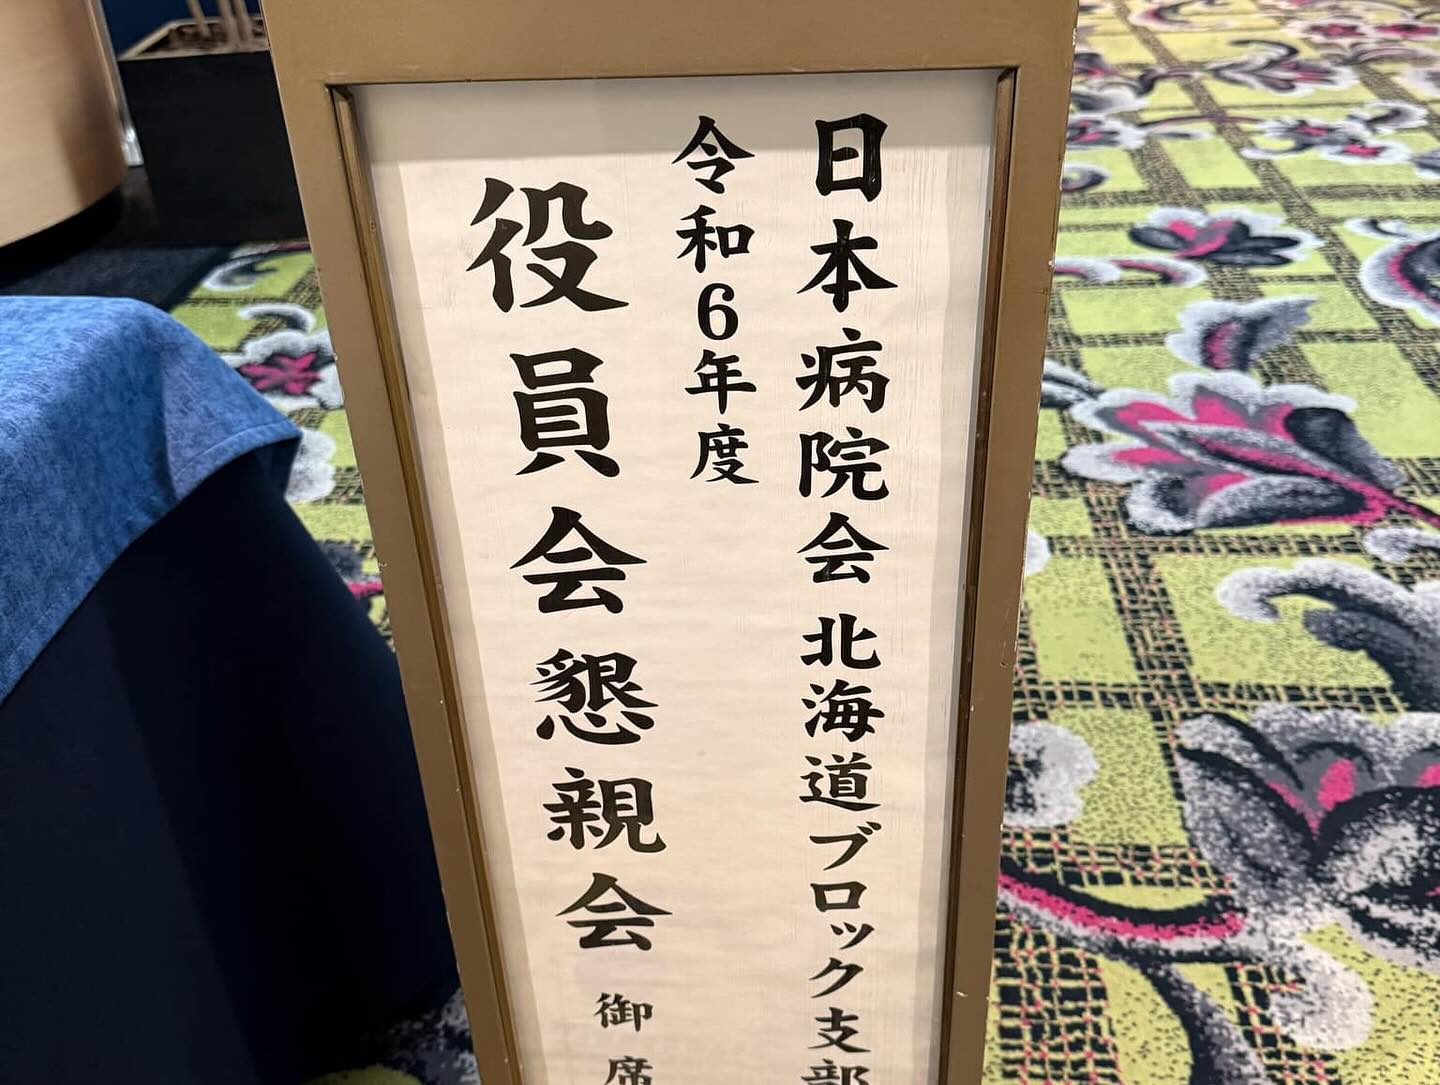 日本病院会 北海道ブロック支部
令和6年度
役員会懇親会 御席